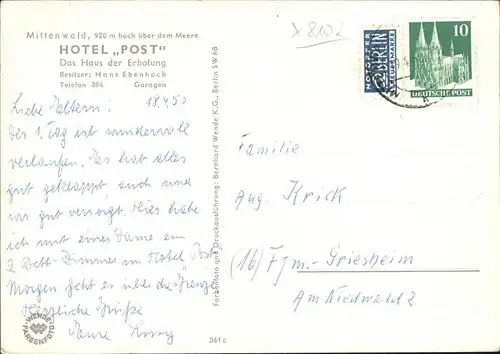 Mittenwald, 920 m hoch über dem Meere
HOTEL „POST"
Das Haus der Erholung
Besitzer: Hans Ebenhoch
Telefon 394 Garagen
Liebe Eltern! 18.4.50
Der 1. Tag ist wundervoll
verlaufen. Es hat alles
gut geklappt, auch sind
wir gut versorgt. Hier habe
ich mit einer Dame ein
2 Bett-Zimmer im Hotel Post
Morgen geht es über die Grenze
Herzliche Grüße
Eure
WENDE
FARBENFOTO
Farbenfoto und Druckausführung: Bernhard Wende K.G., Berlin SW 68
361 c
x 8102
NOTOPFER
2 BERLIN
STEUERMARKE
10
DEUTSCHE POST
Familie
Aug. Krick
(16) Ffm.-Griesheim
Am Niedwald 2